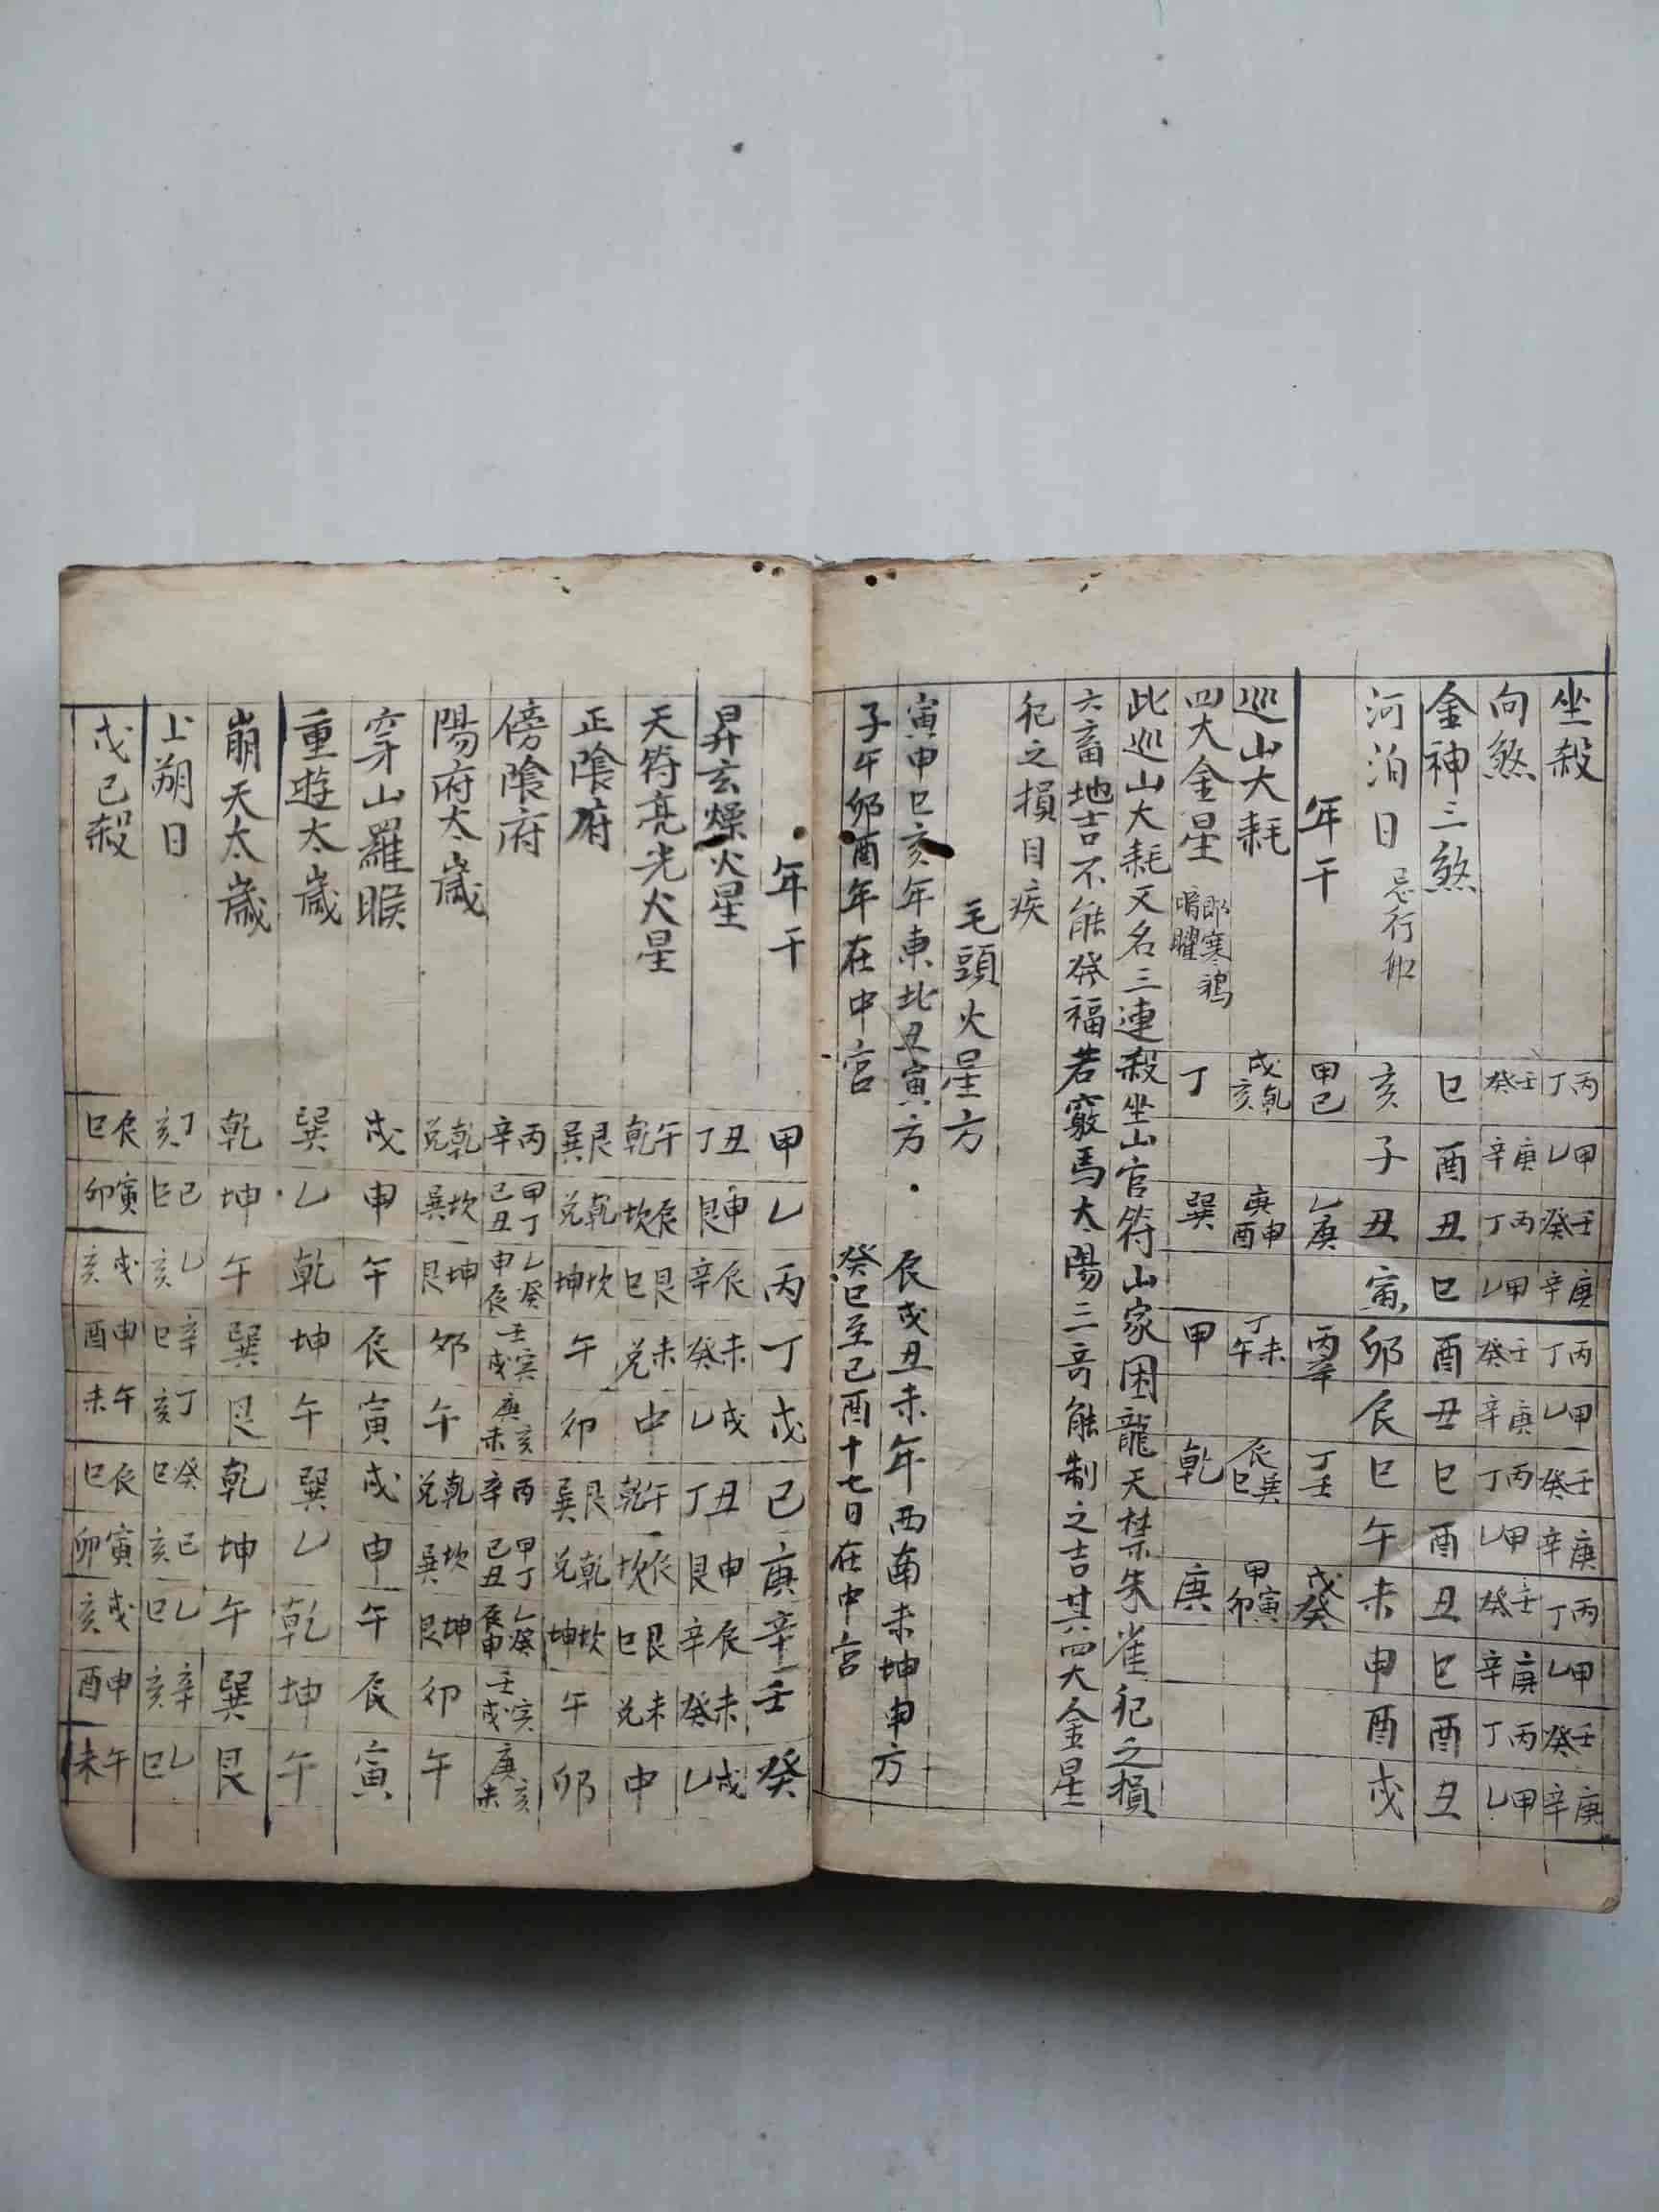 坐殺 丙丁 甲乙 壬癸 庚辛 丙丁 甲乙 壬癸 庚辛 丙丁 甲乙 壬癸 庚辛
向煞 壬癸 庚辛 丙丁 甲乙 壬癸 庚辛 丙丁 甲乙 壬癸 庚辛 丙丁 甲乙
金神三煞 巳 酉 丑 巳 酉 丑 巳 酉 丑 巳 酉 丑
河泊日 忌行船 亥 子 丑 寅 卯 辰 巳 午 未 申 酉 戌
年干 甲己 乙庚 丙辛 丁壬 戊癸
巡山大耗 戌乾亥 庚申酉 丁未午 辰巽巳 甲寅卯
四大金星 即寒鴉鳴曜 丁 巽 甲 乾 庚
此巡山大耗又名三連殺坐山官符山家困龍天禁朱雀犯之損
六畜地吉不能發福若竅馬太陽三奇能制之吉其四大金星
犯之損目疾
毛頭火星方
寅申巳亥年東北丑寅方 辰戌丑未年西南未坤申方
子午卯酉年在中宮 癸巳至己酉十七日在中宮
年干 甲 乙 丙 丁 戊 己 庚 辛 壬 癸
昇玄燥火星 丑丁 申艮 辰辛 未癸 戌乙 丑丁 申艮 辰辛 未癸 戌乙
天符亮光火星 午乾 辰坎 艮巳 未兌 中 午乾 辰坎 艮巳 未兌 中
正陰府 艮巽 乾兌 坎坤 午 卯 艮巽 乾兌 坎坤 午 卯
傍陰府 丙辛 甲丁己丑 乙癸申辰 壬寅戌 庚亥未 丙辛 甲丁己丑 乙癸辰申 壬寅戌 庚亥未
陽府太歲 乾兌 坎巽 坤艮 卯 午 乾兌 坎巽 坤艮 卯 午
穿山羅睺 戌 申 午 辰 寅 戌 申 午 辰 寅
重遊太歲 巽 乙 乾 坤 午 巽 乙 乾 坤 午
崩天太歲 乾 坤 午 巽 艮 乾 坤 午 巽 艮
上朔日 丁亥 己巳 乙亥 辛巳 丁亥 癸巳 己亥 乙巳 辛亥 乙巳
戊己殺 辰巳 寅卯 戌亥 申酉 午未 辰巳 寅卯 戌亥 申酉 午未